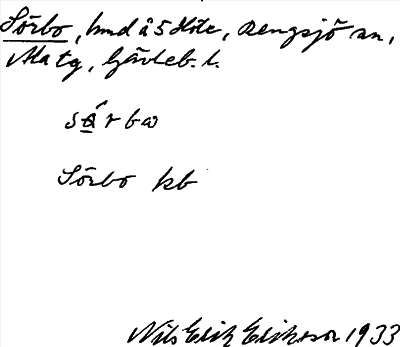 Sörbo, hmd å 5 Höle, Rengsjö sn,
Ala tg, Gävleb. l.
sörbω
Sörbo kb
Nils Erik Eriksson 1933